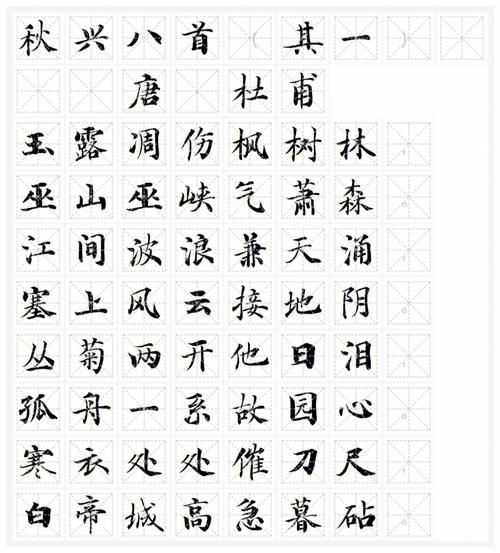 秋兴八首（其一）
唐·杜甫
玉露凋伤枫树林，
巫山巫峡气萧森。
江间波浪兼天涌，
塞上风云接地阴。
丛菊两开他日泪，
孤舟一系故园心。
寒衣处处催刀尺，
白帝城高急暮砧。